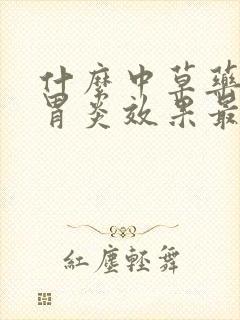 什麼中草藥
胃炎效果最
紅塵輕舞